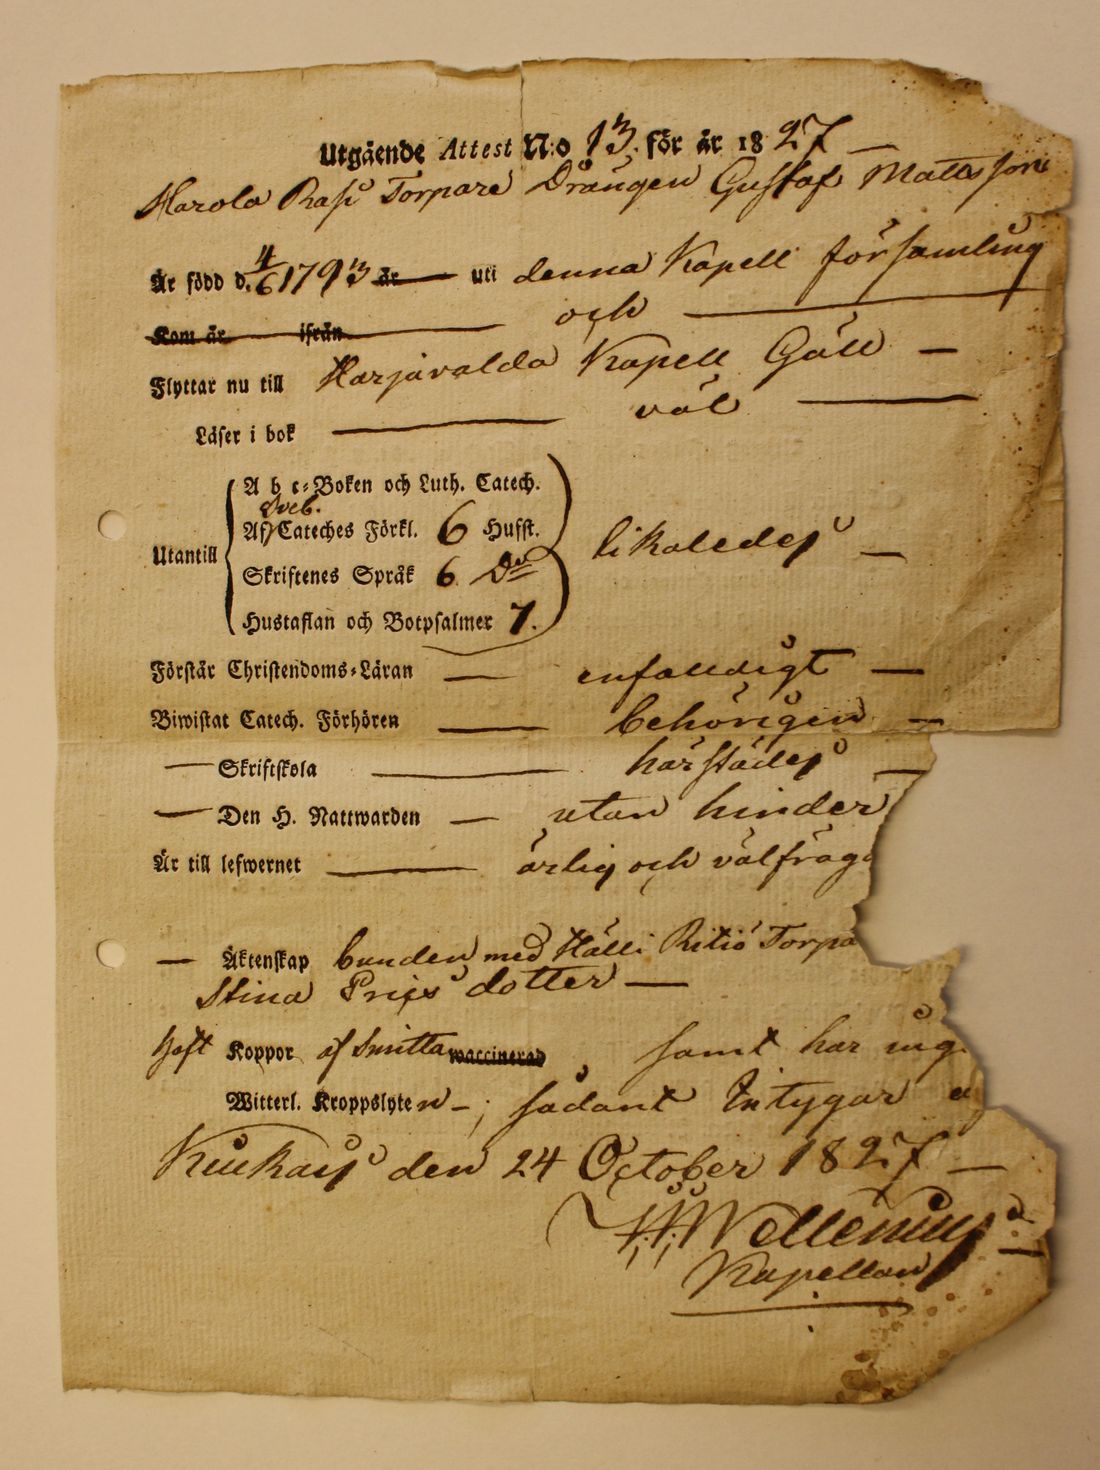 Utgående Attest N:o 13. för år 1827 —
Harola Rasi Torpare Drängen Gustaf Mattsson
Är född d. 4/6 1793 år — uti denna Kapell församling
Kom år ifrån — och —
Flyttar nu till Harjavalda Kapell Gäll —
Läser i bok — väl —
A b c-Boken och Luth. Catech.
Sveb.
Af Cateches Förkl. 6 Hufst.
Utantill likaledes —
Skriftenes Språk 6 Do
Hustaflan och Botpsalmer 7.
Förstår Christendoms-Läran — enfaldigt —
Biwistat Catech. Förhören — behörigen —
— Skriftskola — härstädes —
— Den H. Nattwarden — utan hinder
Är till lefwernet — ärlig och välfräg
— Äktenskap bunden med Hälli Torpa
Stina dotter —
Haft Koppor af Smitta waccinerad, samt har ing
Witterl. Kroppslyten –; sådant Intygar
den 24 October 1827 —
Wellenius
Kapellan